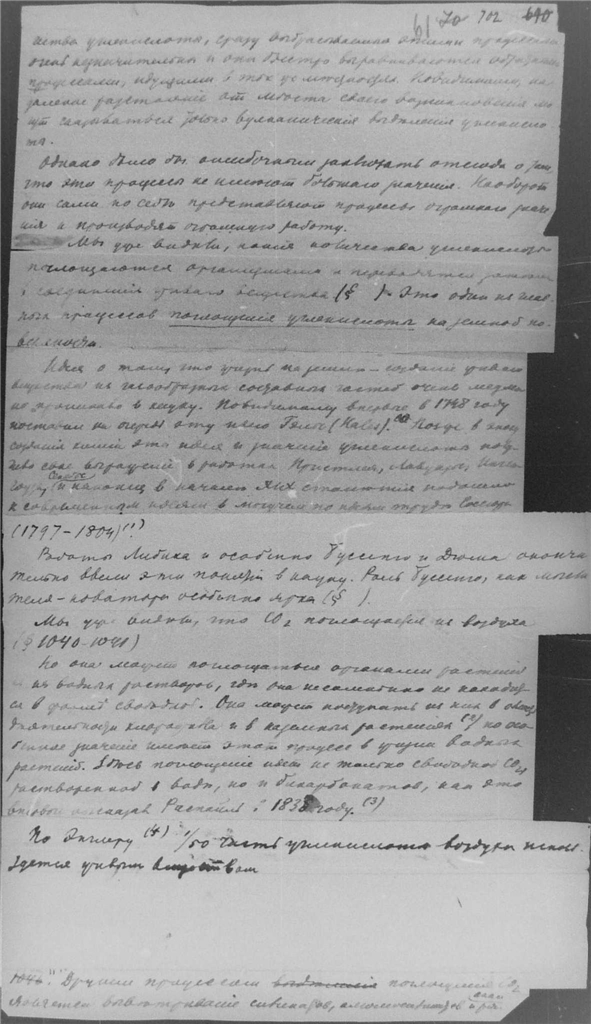 61 70 702 690
чества углекислоты, сразу выбрасывания этими процессами
очень незначительны и она быстро выравнивается обратными
процессами, идущими в тех же местностях. Повидимому, на
далекое расстояние от места своего возникновения мо
гут сказываться только вулканические выделения углекисло
ты.
Однако было бы ошибочным заключать отсюда о том,
что эти процессы не имеют большого значения. Наоборот
они сами по себе представляют процессы огромного значе
ния и производят огромную работу.
Мы уже видели, какие количества углекислоты
поглощаются организмами и переводятся
в соединения живого вещества (§ ) – Это один из глав
ных процессов поглощения углекислоты на земной по
верхности.
Идея о том, что жизнь на земле – создание живого
вещества из газообразных составных частей очень медлен
но проникало в науку. Повидимому впервые в 1748 году
поставил на очередь эту идею Гэльс (Hales).
создания химии эта идея и значение углекислоты полу
чило свое выражение в работах Пристлея, Лавуазье, Инген
гауза, Сенебье и наконец в начале XIX столетия подошло
к современным идеям в могучем по идеям труде Соссюра
(1797–1804)(1)
Работы Либиха и особенно Буссенго и Дюма оконча
тельно ввели эти понятия в науку. Роль Буссенго, как мысли
теля-новатора особенно ярка (§ ).
Мы уже видели, что CO2 поглощается из воздуха
(§ 1040-1041)
Но она может поглощаться органами растений
и из водных растворов, где она несомненно не находит
ся в форме свободной. Она может поступать из них в
деятельности хлорофилла и в наземных растениях (2) но осо
бенное значение имеет этот процесс в жизни водных
растений. Здесь поглощение идет не только свободной CO2
растворенной в воде, но и бикарбонатов, как это
впервые показал Распайль в 1838 году. (3)
По Энглеру (4) 1/50 часть углекислоты воздуха нахо
дится живым веществом
1046. Другим процессом выделения поглощения CO2
является выветривание силикатов, алюмосиликатов и